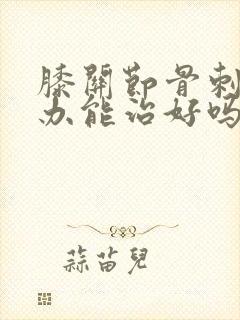 膝關節骨刺
办能治好吗
蒜苗兒